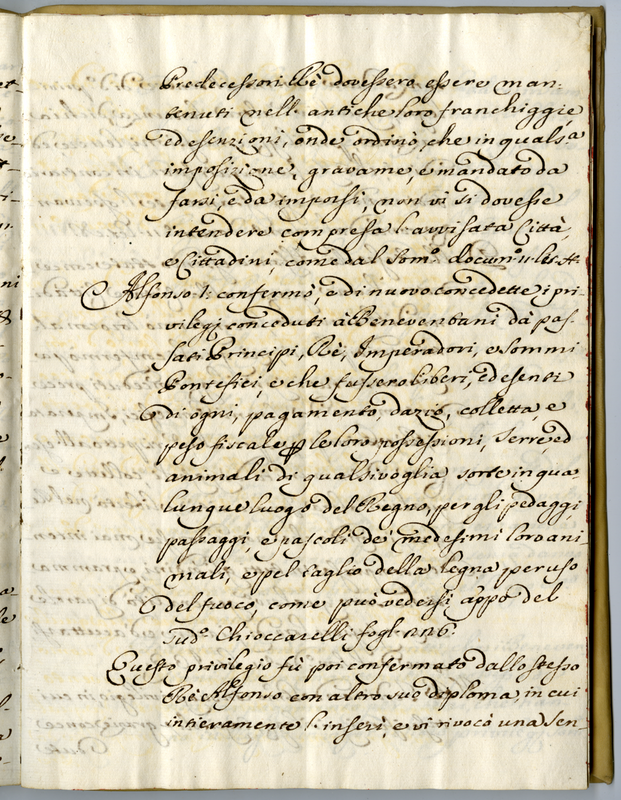 Predecessori Rè dovessero essere man-
tenuti nell'antiche loro franchiggie
ed esenzioni, onde ordinò, che in quals.a
imposizione, gravame, e mandato da
farsi, e da imporsi, non vi si dovesse
intendere compresa l'avvisata Città,
e Cittadini, come dal Som.o docum.o
Alfonso I. confermò, e di nuovo concedette i pri-
vilegj conceduti à Beneventani dà pas-
sati Principi, Rè, Imperadori, e Sommi
Pontefici, e che fussero liberi, ed esenti
di ogni, pagamento, dazio, colletta, e
peso fiscale le loro possessioni, Terre, ed
animali di qualsivoglia sorte in qua-
lunque luogo del Regno, per gli pedaggi,
passaggi, e pascoli de' medesimi loro ani-
mali, e pel taglio della legna per uso
del fuoco, come può vedersi appo del
Sud.o Chioccarelli fogl.
Questo privilegio fù poi confermato dallo stesso
Rè Alfonso con altro suo diploma, in cui
intieramente l'inserì, e vi rivocò una Sen-